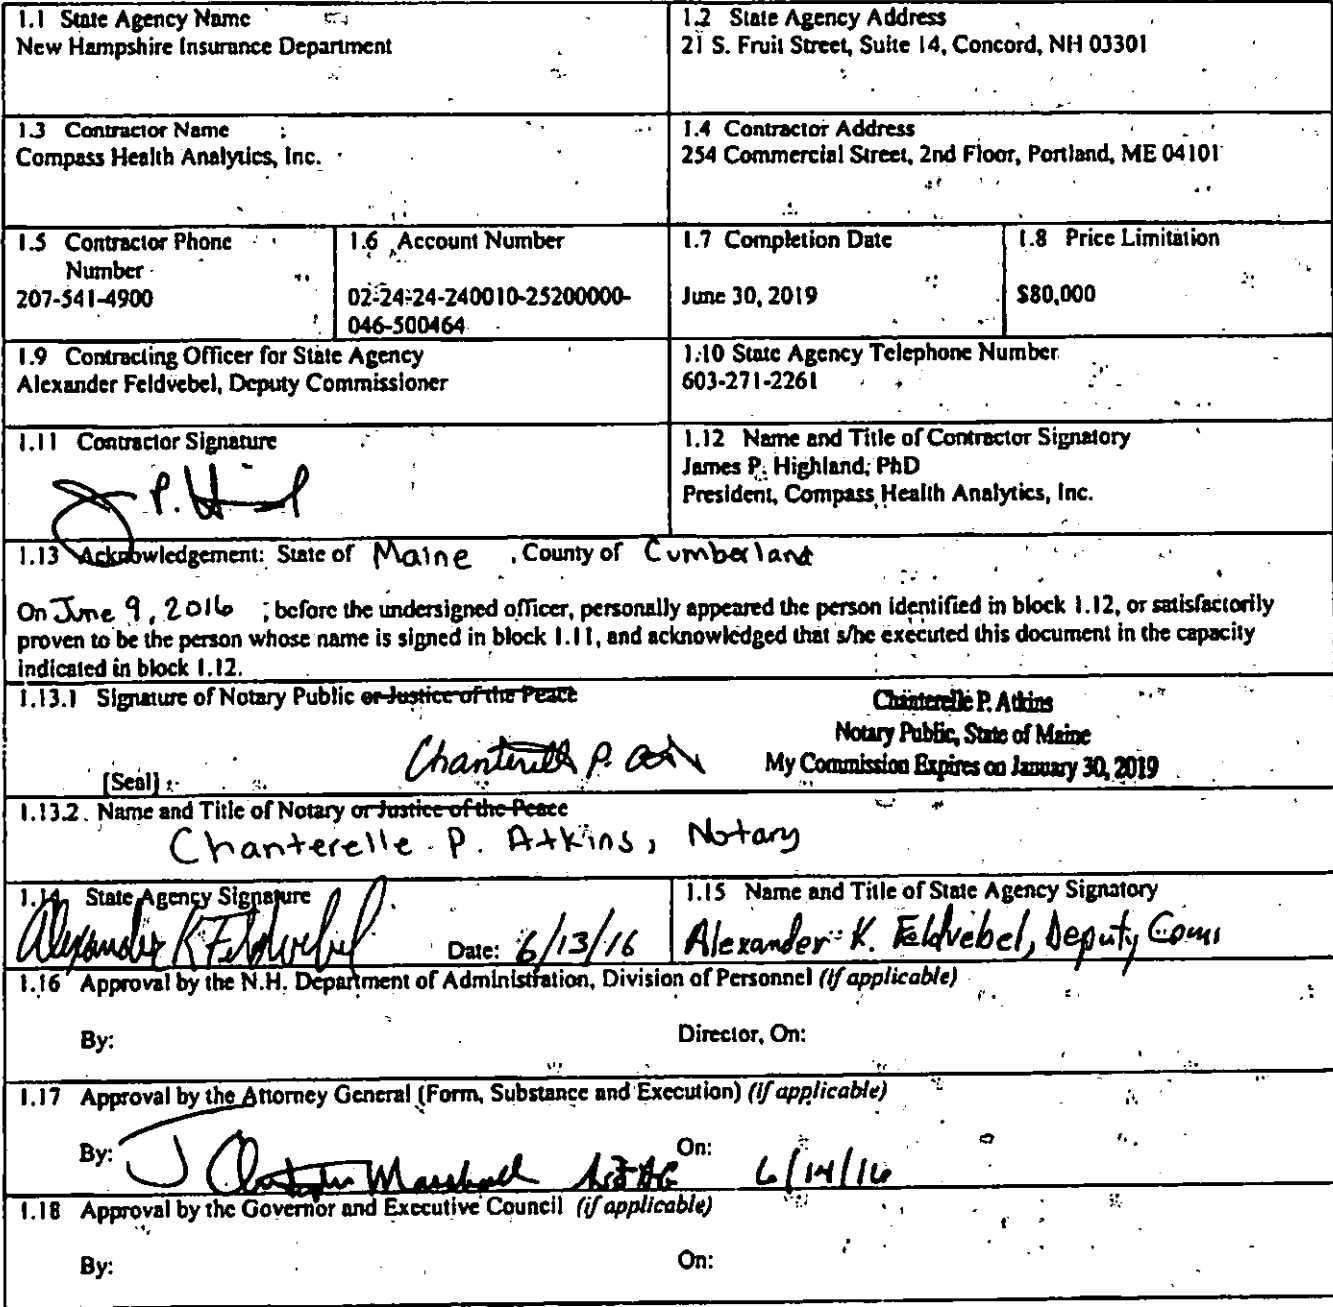 1.1 State Agency Name
New Hampshire Insurance Department
1.2 State Agency Address
21 S. Fruit Street, Suite 14, Concord, NH 03301
1.3 Contractor Name
Compass Health Analytics, Inc.
1.4 Contractor Address
254 Commercial Street, 2nd Floor, Portland, ME 04101
1.5 Contractor Phone
Number
207-541-4900
1.6 Account Number
02-24-24-240010-25200000-
046-500464
1.7 Completion Date
June 30, 2019
1.8 Price Limitation
$80,000
1.9 Contracting Officer for State Agency
Alexander Feldvebel, Deputy Commissioner
1.10 State Agency Telephone Number
603-271-2261
1.11 Contractor Signature
1.12 Name and Title of Contractor Signatory
James P. Highland, PhD
President, Compass Health Analytics, Inc.
1.13 Acknowledgement: State of Maine , County of Cumberland
On June 9, 2016 ; before the undersigned officer, personally appeared the person identified in block 1.12, or satisfactorily
proven to be the person whose name is signed in block 1.11, and acknowledged that s/he executed this document in the capacity
indicated in block 1.12.
1.13.1 Signature of Notary Public or Justice of the Peace
Chanterelle P. Atkins
Notary Public, State of Maine
My Commission Expires on January 30, 2019
[Seal]
1.13.2 Name and Title of Notary or Justice of the Peace
Chanterelle P. Atkins, Notary
1.14 State Agency Signature
Alexander K Feldvebel
Date: 6/13/16
1.15 Name and Title of State Agency Signatory
Alexander K. Feldvebel, Deputy Com
1.16 Approval by the N.H. Department of Administration, Division of Personnel (if applicable)
By:
Director, On:
1.17 Approval by the Attorney General (Form, Substance and Execution) (if applicable)
By: Marshall
On: 6/14/16
1.18 Approval by the Governor and Executive Council (if applicable)
By:
On: